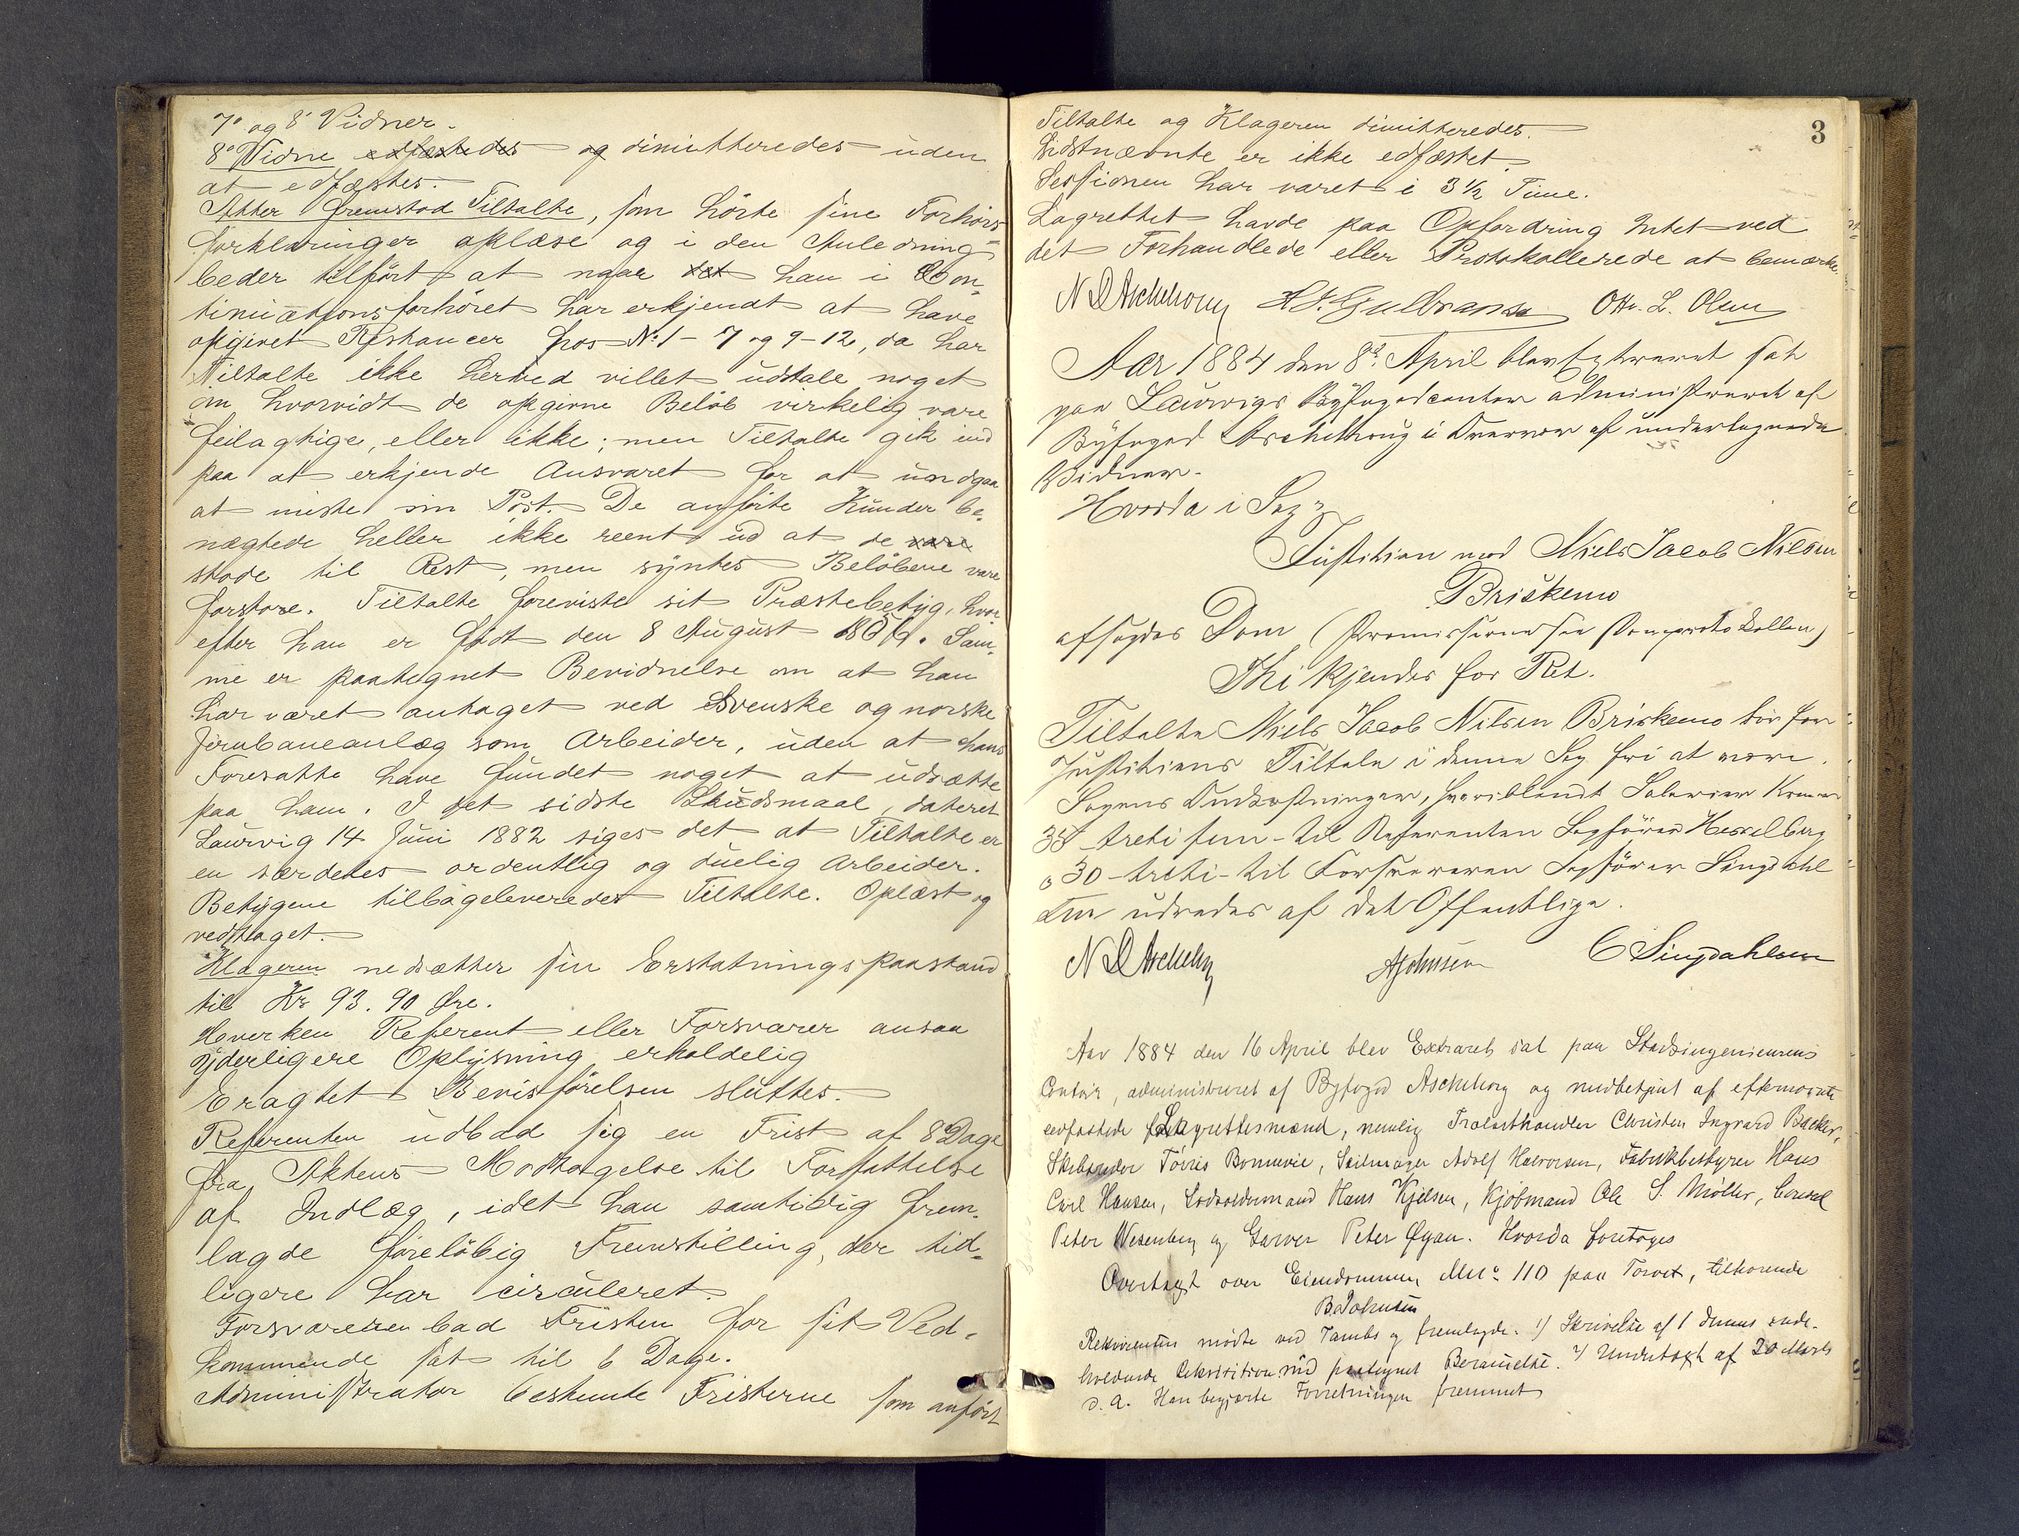 7' og 8' Vidner.
8' Vidne edfæstedes og dimitteredes uden
at edfæstes.
Atter fremstod Tiltalte, som hörte sine Forhörs-
forklaringer oplæse og i den Anledning
beder tilfört at naar det han i Con-
tinuationsforhöret har erkjendt at have
opgivet Restancer hos No 1 - 7 og 9-12, da har
Tiltalte ikke herved villet udtale noget
om hvorvidt de opgivne Belöb virkelig vare
feilagtige, eller ikke; men Tiltalte gik ind
paa at erkjende Ansvaret for at undgaa
at miste sin Post. De anförte Kunder be-
nægtede heller ikke reent ud at de vare
stode til Rest, men syntes Belöbene vare
forstore. Tiltalte foreviste sit Præstebetyg, hvor-
efter han er födt den 8 August 1856. Sam-
me er paategnet Bevidnelse om at han
har været antaget ved Svenske og norske
Jernbaneanlæg som Arbeider, uden at hans
Foresatte have fundet noget at udsætte
paa ham. I det sidste Skudsmaal, dateret
Laurvig 14 Juni 1882 siges det at Tiltalte er
en særdeles ordentlig og duelig Arbeider.
Betygene tilbageleveredes Tiltalte. Oplæst og
vedtaget.
Klageren nedsætter sin Erstatningspaastand
til Kr 93. 90 Øre.
Hverken Referent eller Forsvarer ansaa
yderligere Oplysning erholdelig
Eragtet Bevisförelsen sluttes.
Referenten udbad sig en Frist af 8 Dage
fra Aktens Modtagelse til Forfattelse
af Indlæg, idet han samtidig frem-
lagde foreløbig Fremstilling, der tid-
ligere har circuleret.
Forsvareren bad Fristen for sit Ved-
kommende sat til 6 Dage.
Administrator bestemte Fristerne som anfört
3
Tiltalte og Klageren dimitteredes.
Sidstnævnte er ikke edfæstet.
Sessionen har varet i 3 ½ Time.
Lagrettet havde paa Opfordring Intet ved
det Forhandlede eller Protokollerede at bemærke.
N D Aschehoug H. J. Gulbransen Ott. L. Olsen
Aar 1884 den 8de April blev Extraret sat
paa Laurvigs Byfogedcontor administreret af
Byfoged Aschehoug i Overvær af undertegnede
Vidner.
Hvorda i Sag:
Justitien mod Niels Jacob Nilsen
Briskemo
afsagdes Dom (Præmisserne see Domprotokollen)
Thi kjendes for Ret.
Tiltalte Niels Jacob Nilsen Briskemo bør for
Justitiens Tiltale i denne Sag fri at være.
Sagens Omkostninger, hvoriblandt Salarier Kroner
35 - treti fem - til Referenten Sagfører Hesselberg
og 30 - treti - til Forsvareren Sagfører Singdahl
sen udredes af det Offentlige.
N D Aschehoug AJohnsen C Singdahlsen
Aar 1884 den 16 April blev Extraret sat paa Stadsingenieurens
Contoir, administreret af Byfoged Aschehoug og medbetjent af efternævnte
edfæstede Lagrettesmænd, nemlig Trælasthandler Christen Ingvard Backer,
Skibsreder Tørris Bonnevie, Seilmager Adolf Halvorsen, Fabrikbestyrer Hans
Carl Hansen, Lodsoldermand Hans Kjelsen, Kjøbmand Ole S. Møller, Consul
Peter Wesenberg og Garver Peter Øyan. Hvorda foretoges
Overtagt over Eiendommen Mno 110 paa Torvet, tilhørende
B Johnsen
Rekvirenten mødte ved Tambs og fremlagde. 1) Skrivelse af 1 dennes inde-
holdende Rekvisition med paategnet Berammelse. 2) Undertagt af 20 Marts
d. A. Han begjærte Forretningen fremmet